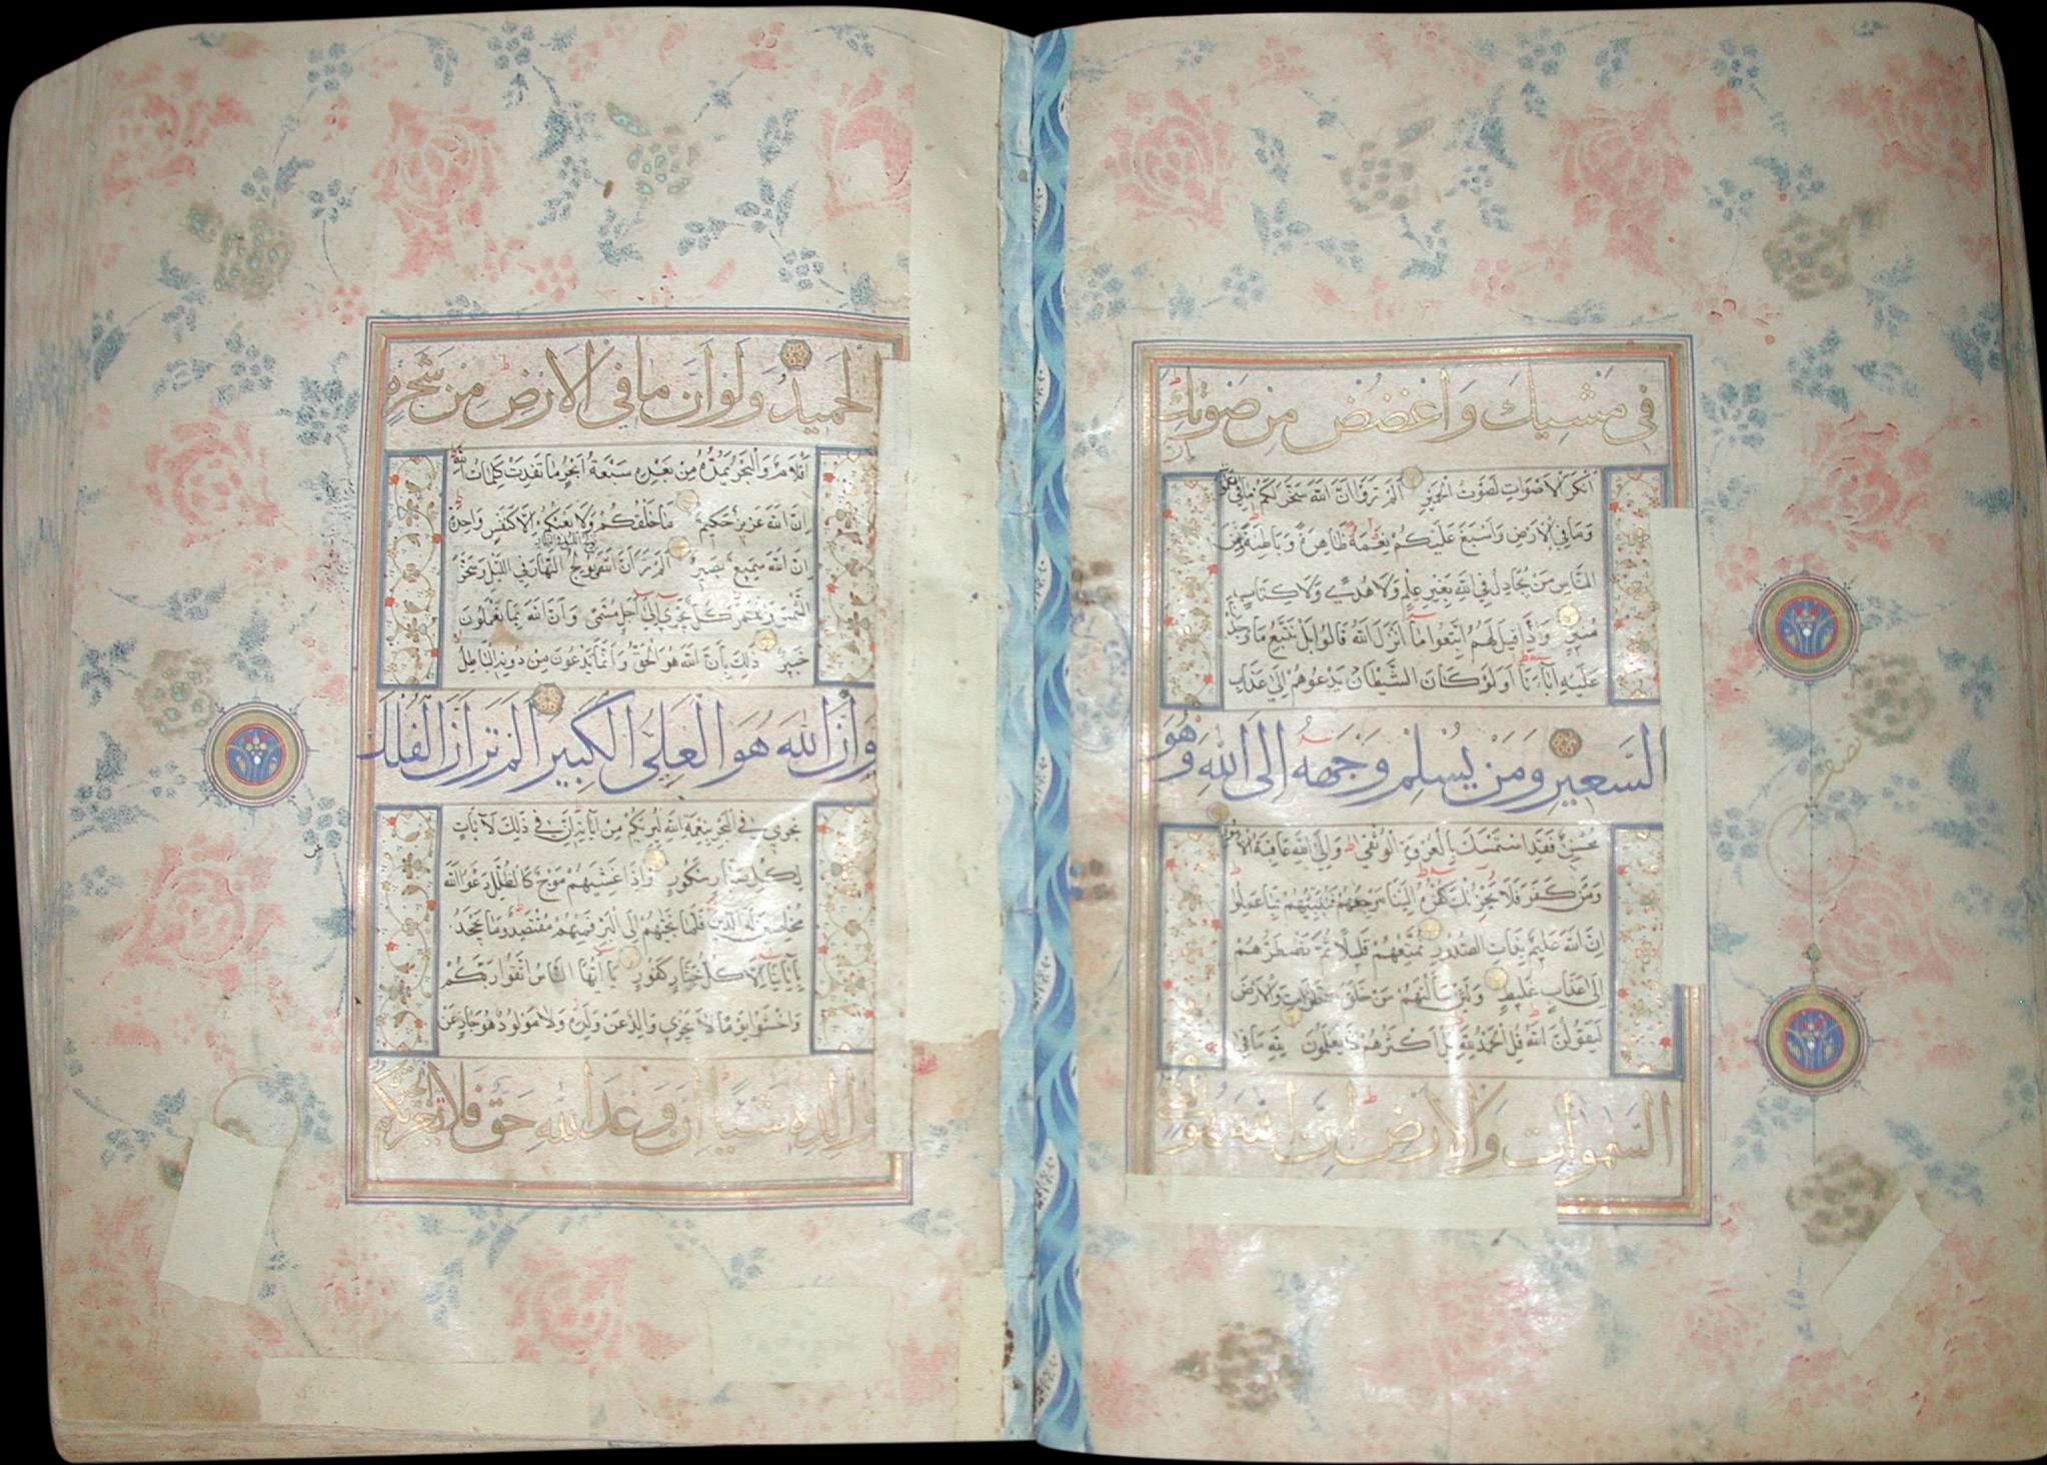 في مشيك واغضض من صوتك ان
انكر الاصوات لصوت الحمير الم تروا ان الله سخر لكم ما في السموات
وما في الارض واسبغ عليكم نعمه ظاهرة وباطنة ومن
الناس من يجادل في الله بغير علم ولا هدى ولا كتاب
منير واذا قيل لهم اتبعوا ما انزل الله قالوا بل نتبع ما وجدنا
عليه اباءنا اولو كان الشيطان يدعوهم الى عذاب
السعير ومن يسلم وجهه الى الله وهو
محسن فقد استمسك بالعروة الوثقى والى الله عاقبة الامور
ومن كفر فلا يحزنك كفره الينا مرجعهم فننبئهم بما عملوا
ان الله عليم بذات الصدور نمتعهم قليلا ثم نضطرهم
الى عذاب غليظ ولئن سالتهم من خلق السموات والارض
ليقولن الله قل الحمد لله بل اكثرهم لا يعلمون لله ما في
السموات والارض ان الله هو الغني
نصف
الحميد ولو ان ما في الارض من شجرة
اقلام والبحر يمده من بعده سبعة ابحر ما نفدت كلمات الله
ان الله عزيز حكيم ما خلقكم ولا بعثكم الا كنفس واحدة
ان الله سميع بصير الم تر ان الله يولج النهار في الليل وسخر
الشمس والقمر كل يجري الى اجل مسمى وان الله بما تعملون
خبير ذلك بان الله هو الحق وان ما يدعون من دونه الباطل
وان الله هو العلي الكبير الم تر ان الفلك
تجري في البحر بنعمة الله ليريكم من اياته ان في ذلك لايات
لكل صبار شكور واذا غشيهم موج كالظلل دعوا الله
مخلصين له الدين فلما نجيهم الى البر فمنهم مقتصد وما يجحد
باياتنا الا كل ختار كفور يا ايها الناس اتقوا ربكم
واخشوا يوما لا يجزي والد عن ولده ولا مولود هو جاز عن
والده شيئا ان وعد الله حق فلا تغرنكم
ع